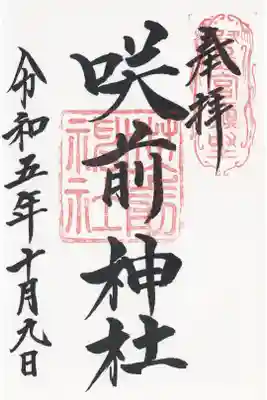 奉拝
咲前神社
令和五年十月九日
咲前神社